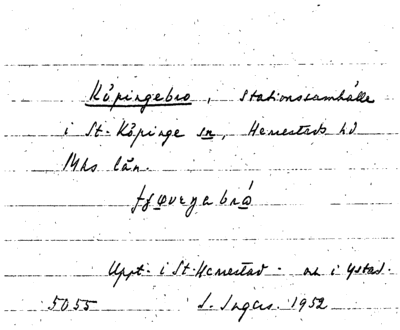 Köpingebro, stationssamhälle
i St. Köpinge sn, Herrestads hd
Mhs län.
Uppt. i St. Herrestad - och i Ystad.
5055 S. Ingers. 1952